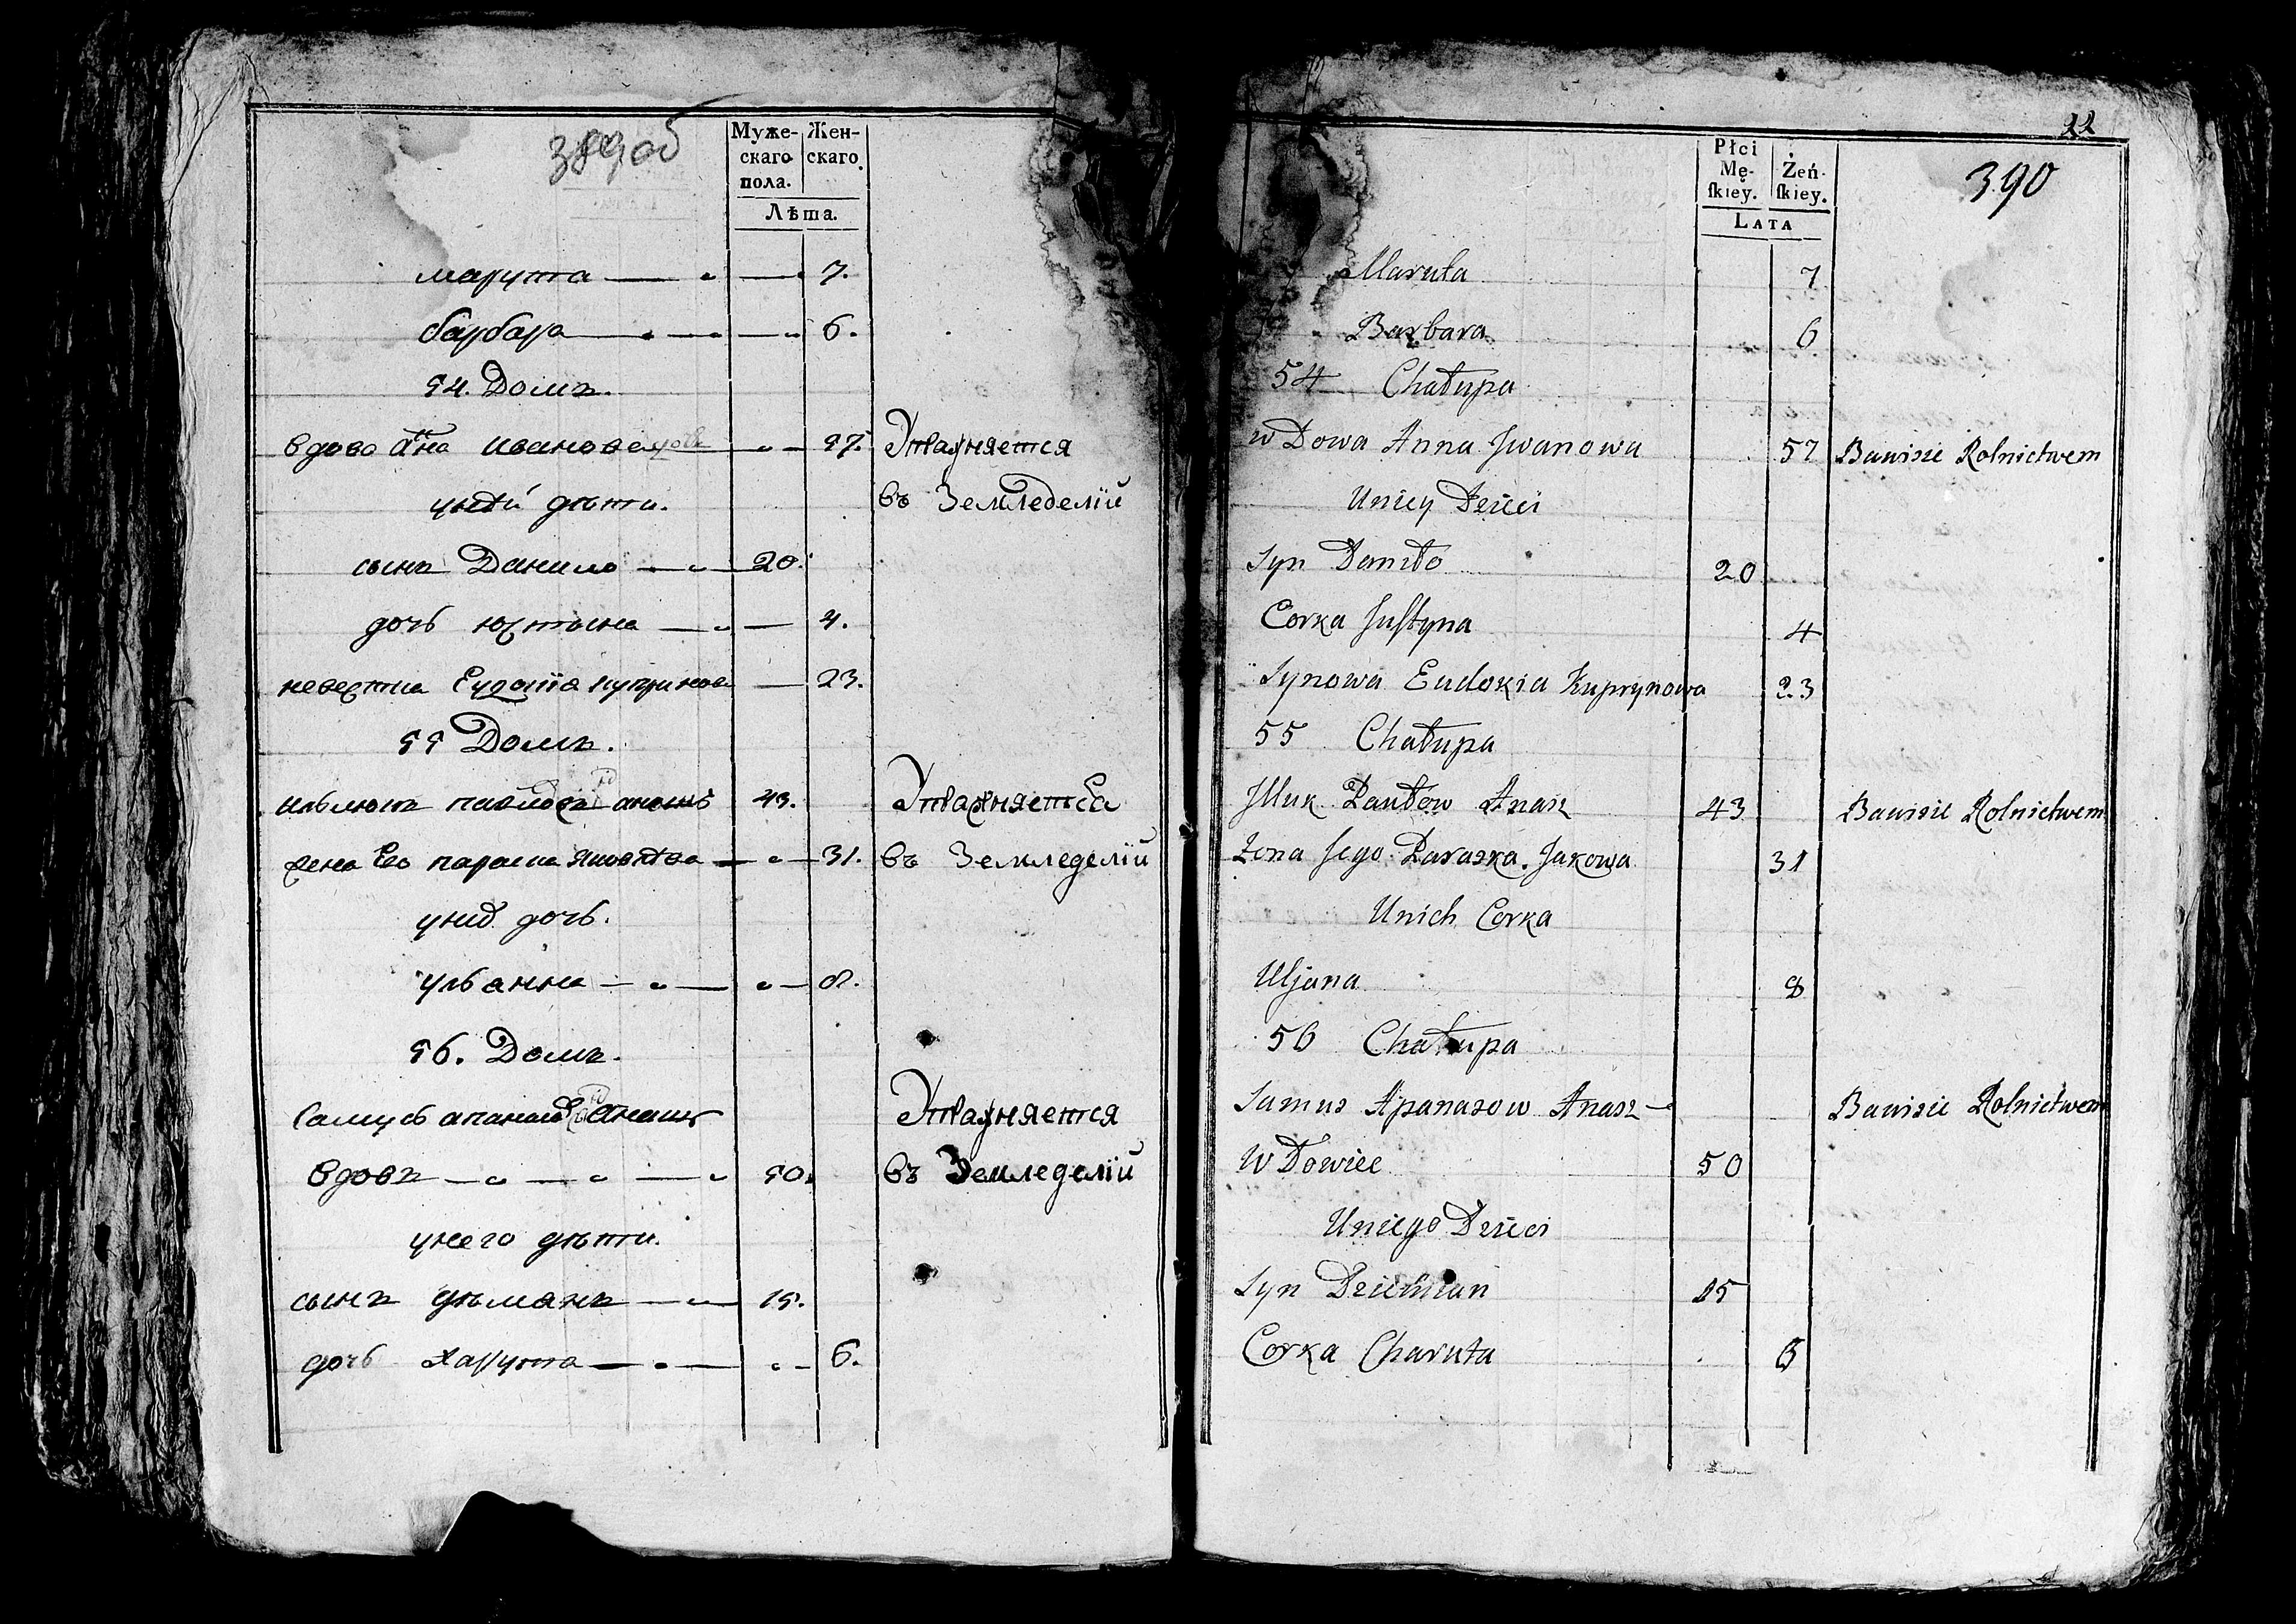 389об
Муже-
скаго
пола.
Жен-
скаго
Лѣта.
марута 7.
барбара 6.
54. Домъ.
вдова Анна Иванова 57. Упражняется
унеи дѣти. въ Земледелїи
сынъ Данило 20.
дочь юстына 4.
невестка Еудокїа купрынова 23.
55 Домъ.
43. Упражняется
жена Его параска 31. въ Земледелїи
дочь.
ульанна 8.
56. Домъ.
Самусь Упражняется
вдовъ 50. въ Земледелїи
унего дѣти.
сынъ дѣмянъ 15.
дочь Харута 6.
22
390
Płci
Mę-
ſkiey.
Żeń-
ſkiey.
LATA
Maruta 7
Barbara 6
54 Chałupa
wDowa Anna Jwanowa 57 Bawisie Rolnictwem
Uniey Dzieci
Syn Daniło 20
Corka Juſtyna 4
Synowa Eudokia Kuprynowa 23
55 Chałupa
Pawłow Anasz 43 Bawisie Rolnictwem
Zona Jego Paraska Jakowa 31
Unich Corka
Uljana 8
56 Chałupa
Samus Apanasow Anasz Bawisie Rolnictwem
WDowiec 50
Uniego Dzieci
Syn Dziemian 15
Corka Charuta 6